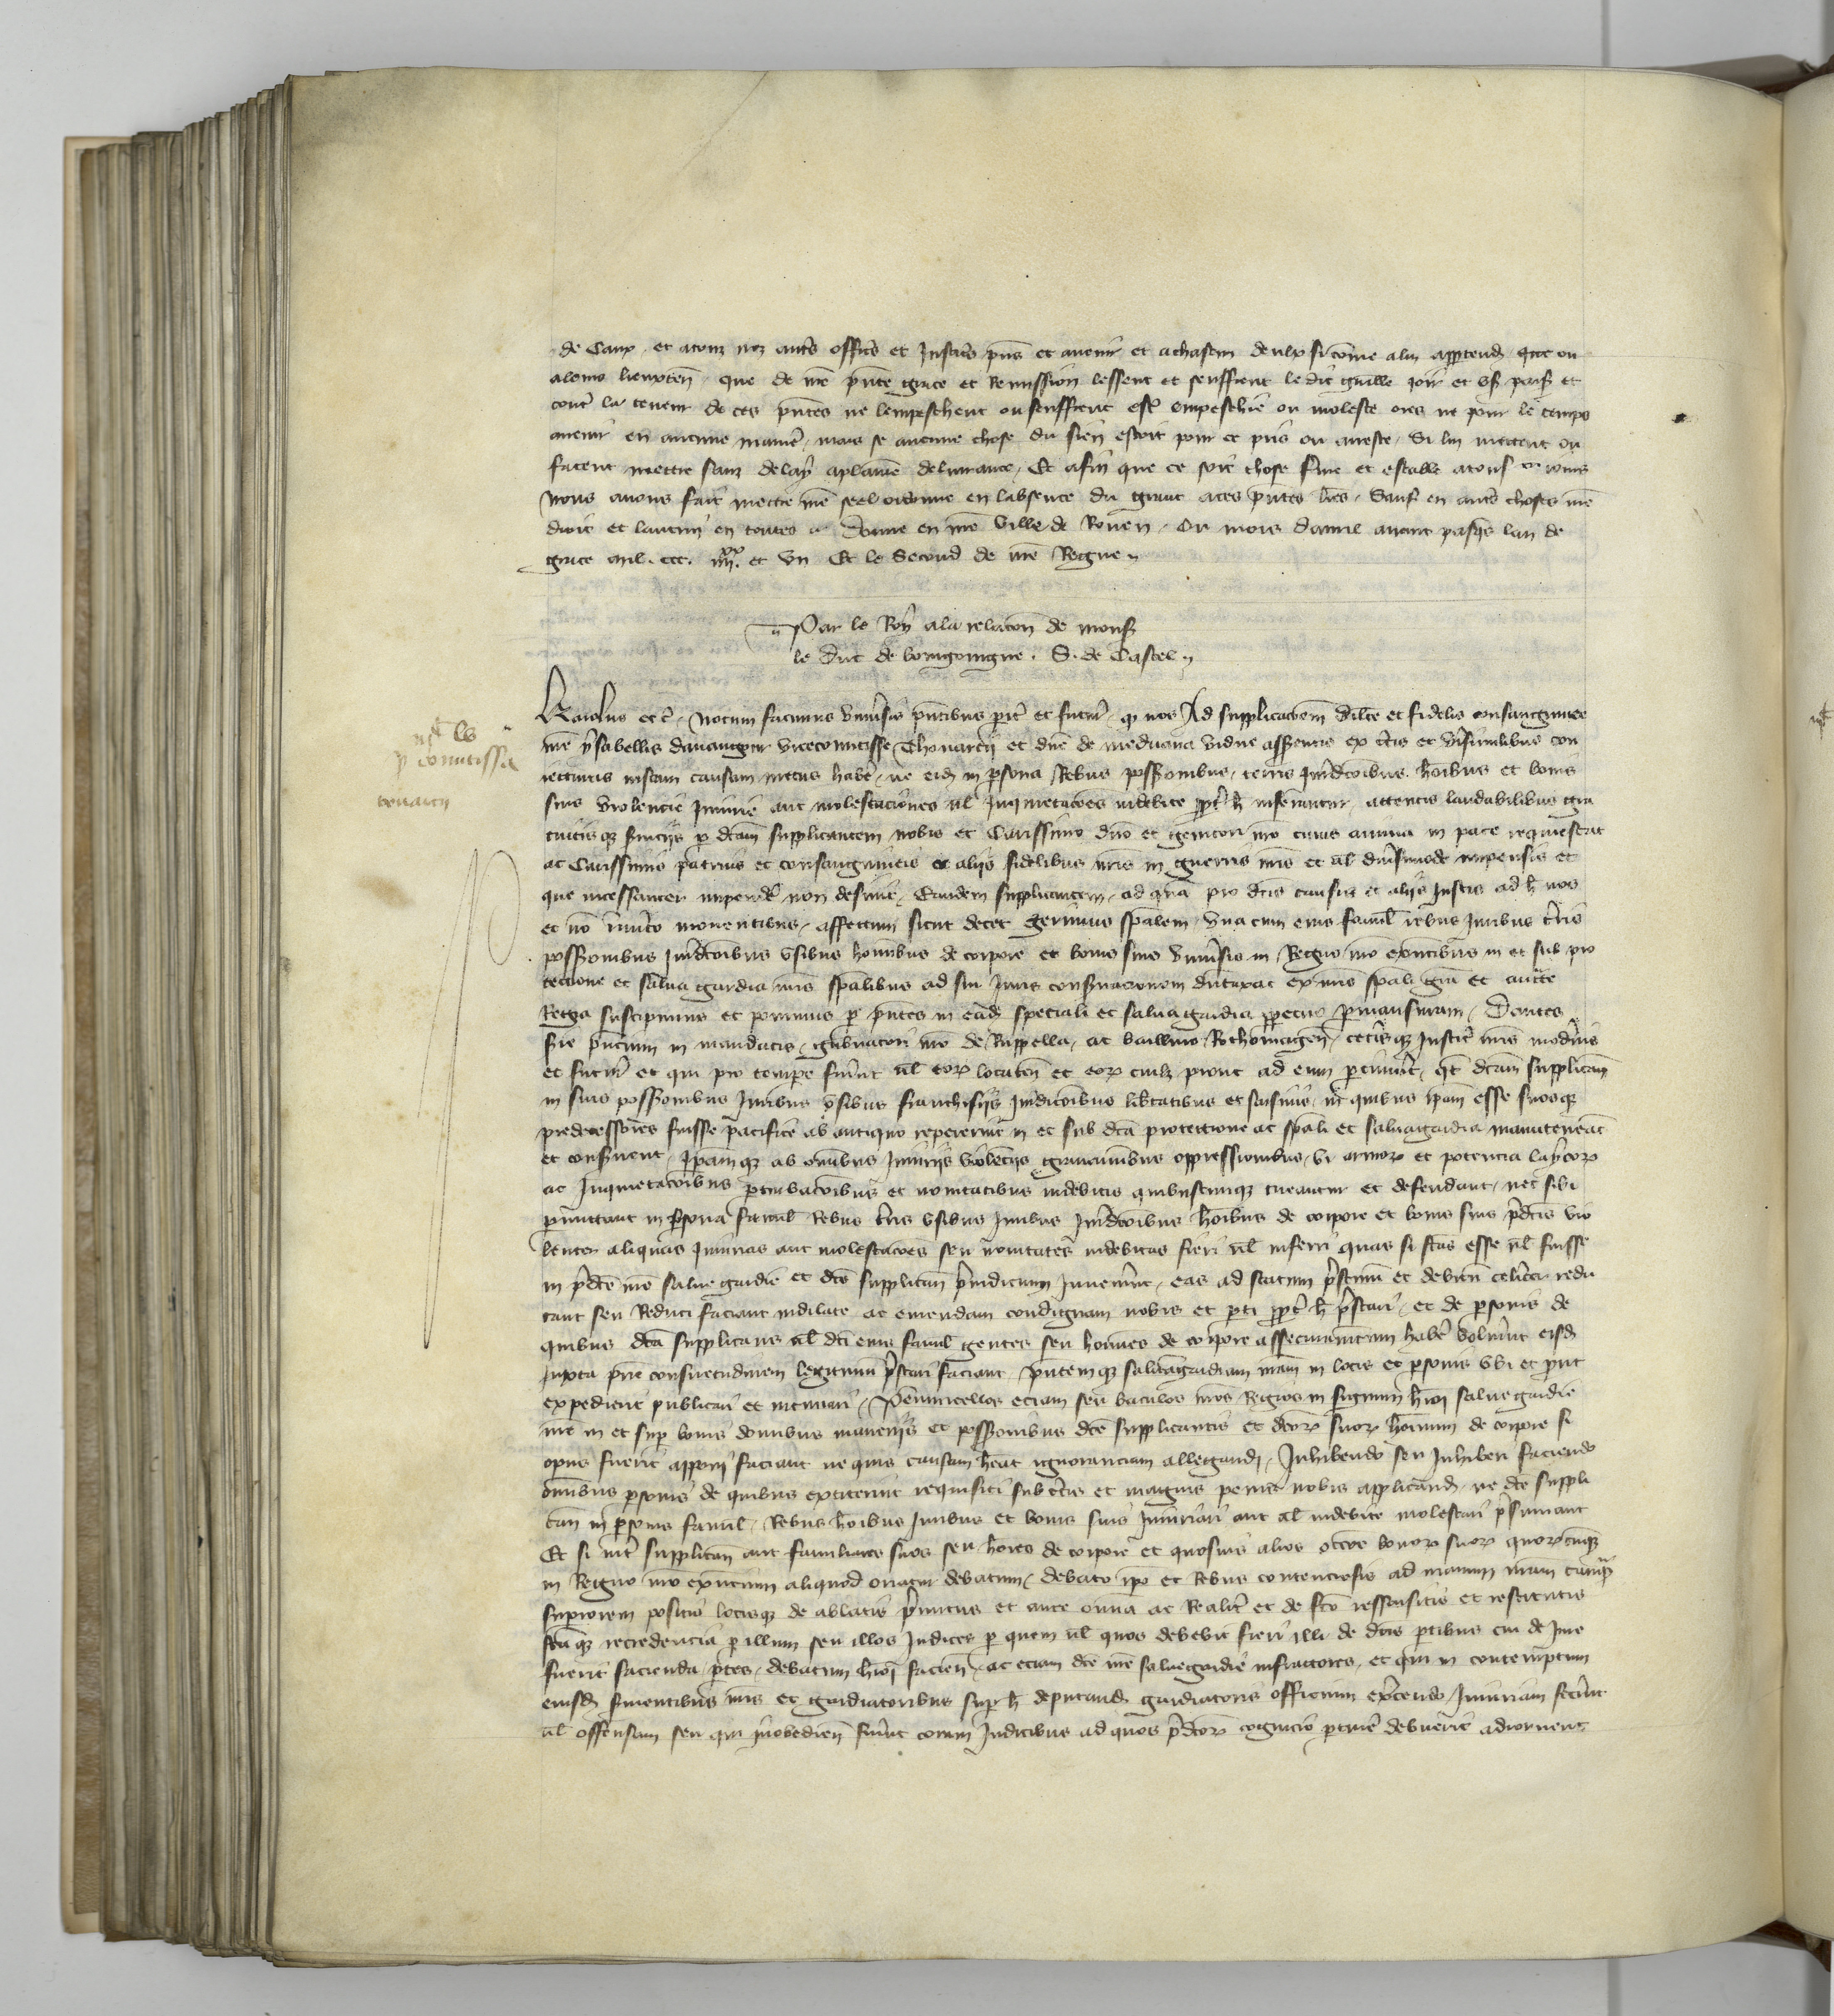 de Caux et a touz noz autrs officrs et Justicrs pns et avenir et a chascun deulx si comme a lui appartendr que ou
a leurs lieuxten que de nre pnte grace et Remission lessent et seuffrent le dit Guille joir et us paisr et
contr la teneur de ces pntes ne lempeschent ou seuffrent estr empeschie ou moleste ores ne pour le temps
avenir en aucune manier mais se aucune chose du sien estoit pour ce pris ou arreste Si lui mettent ou
facent mettre sanz delay a plaine delivrance Et afin que ce soit chose ferme et estable a touz iours
Nous avons fait mettre nre seel ordonne en labsence du grant a ces pntes lres Sauf en autrs choses nre
droit et lautrui en toutes Donne en nre ville de Rouen Ou mois davril avant pasqs lan de
grace mil. ccc. iiiixx. et un Et le Second de nre Regne
Par le Roy a la relacion de mons
le duc de bourgoingne . S. de Castel
Karolus etc Notum facimus universis pntibus pitr et futuris q nos Ad supplicacoem dilce et fidelis consanguinee
nre ysabellis davaugour vicecomitisse Thouarcii et dne de meduana vidue asserentis ex ctis et verisimilibus con
iecturis iustam causam metus haber ne eid in psona Rebus possionibus terris Jurisdcoibus hoibus et bonis
suis violencie Jniurie aut molestaciones ul Jnquietacoes indebite ppt h inferantur attentis laudabilibus gra
tuitisq serviciis p dcam supplicantem nobis et Carissimo dno et genitori nro cuius anima in pace requiescat
ac Carissimis patruis et consanguineis et aliis fidelibus nris in guerris nris et al divsimode impensis et
que incessanter impendr non desinit Eandem supplicantem ad qua pro dcis causis et aliis Justis ad h nos
et no imito moventibus affectum sicut decet gerimus spalem una cum eius famil rebus Juribus terris
possionibus Jurisdcoibus usibus hominibus de corpore et bonis suis universis in Regno nro existentibus in et sub pro
tectione et salva gardia nris spalibus ad sui Juris consvacionem dumtaxat ex nris spali gra et auctte
Regia suscipimus et ponimus p pntes in ead speciali et salvagardia ppetuo pmansuram Dantes
sie pncium in mandatis gubnatori nro de Ruppella ac baillivo Rothomagen cetisq Justic nris modernis
et futuris et qui pro tempe fuerint ul eor locaten et eor cuilz prout ad eum ptinuit qt dcam supplicam
in suis possionibus Juribus usibus franchisiis Jurisdicoibus libtatibus et saisinis in quibus ipam esse suosq
predecessores fuisse pacifice ab antiquo reperrerint in et sub dca protectione ac spali et salvagardia manuteneat
et consvent Jpamq ab omibus Jniuriis violeciis gravaminibus oppressionibus vi armor et potencia laycor
ac Jnquietacoibus ptrubacoibus et novitatibus indebitis quibuscumq tueantur et defendant nec sibi
pmittant in psona famil Rebus terris usibus Juribus Jurisdcoibus hoibus de corpore et bonis suis pdcis vio
lenter aliquas Jniurias aut molestacoes seu novitates indebitas fieri ul inferri quas si fcas esse ul fuisse
in pdce nre salve gardie et dce supplican preiudicium Jnvenint eas ad statum pstinu et debitu celiter redu
cant seu Reduci faciant indilate ac emendam condignam nobis et pti ppt h pstari et de psonis de
quibus dca supplicans ul dci eius famil gentes seu homines de corpore assecuramentum haber volunt eisd
Juxta prie consuetudinem legitimu pstari faciant pntemq salvagardiam nram in locis et psonis ubi et prt
expedierit publicari et intimari Pennuncellos eciam seu baculos nros Regios in signum hmoi salve gardie
nre in et sup bonis domibus maneriis et possionibus dce supplicantis et dcor suor hominum de corpore si
opus fuerit apponi faciant ne quis causam heat ignoranciam allegandi Jnhibendo seu Jnhiberi faciendo
omibus psonis de quibus extiterint requisiti sub ctis et magnis penis nobis applicand ne dce suppli
can in psonis famil Rebus hoibus Juribus et bonis suis Jniuriari aut al indebite molestari psumant
Et si intr supplican aut familiares suos seu hoies de corpore et quosvis alios occoe bonor suor quorcumq
in Regno nro existentium aliquod oriatur debatum debato ipo et Rebus contenciosis ad manum nram tamq
supiorem positis locisq de ablatis primitus et ante omnia ac Realitr et de fco ressaisitis et resertitis
fcaq recredencia p illum seu illos Judices p quem ul quos debebit fieri illi de dcis ptibus cui de Jure
fuerit facienda ptes debatum hmoi facien ac eciam dce nre salvegardie infractores et qui in contemptum
eiusd svientibus nris et gardiatoribus sup h deputand gardiatoris officium excendo Jniuriam fecint
ul offensam seu qui inobedien fuerint coram Judicibus ad quos pdcor cognicio ptinere debuerit adiornent